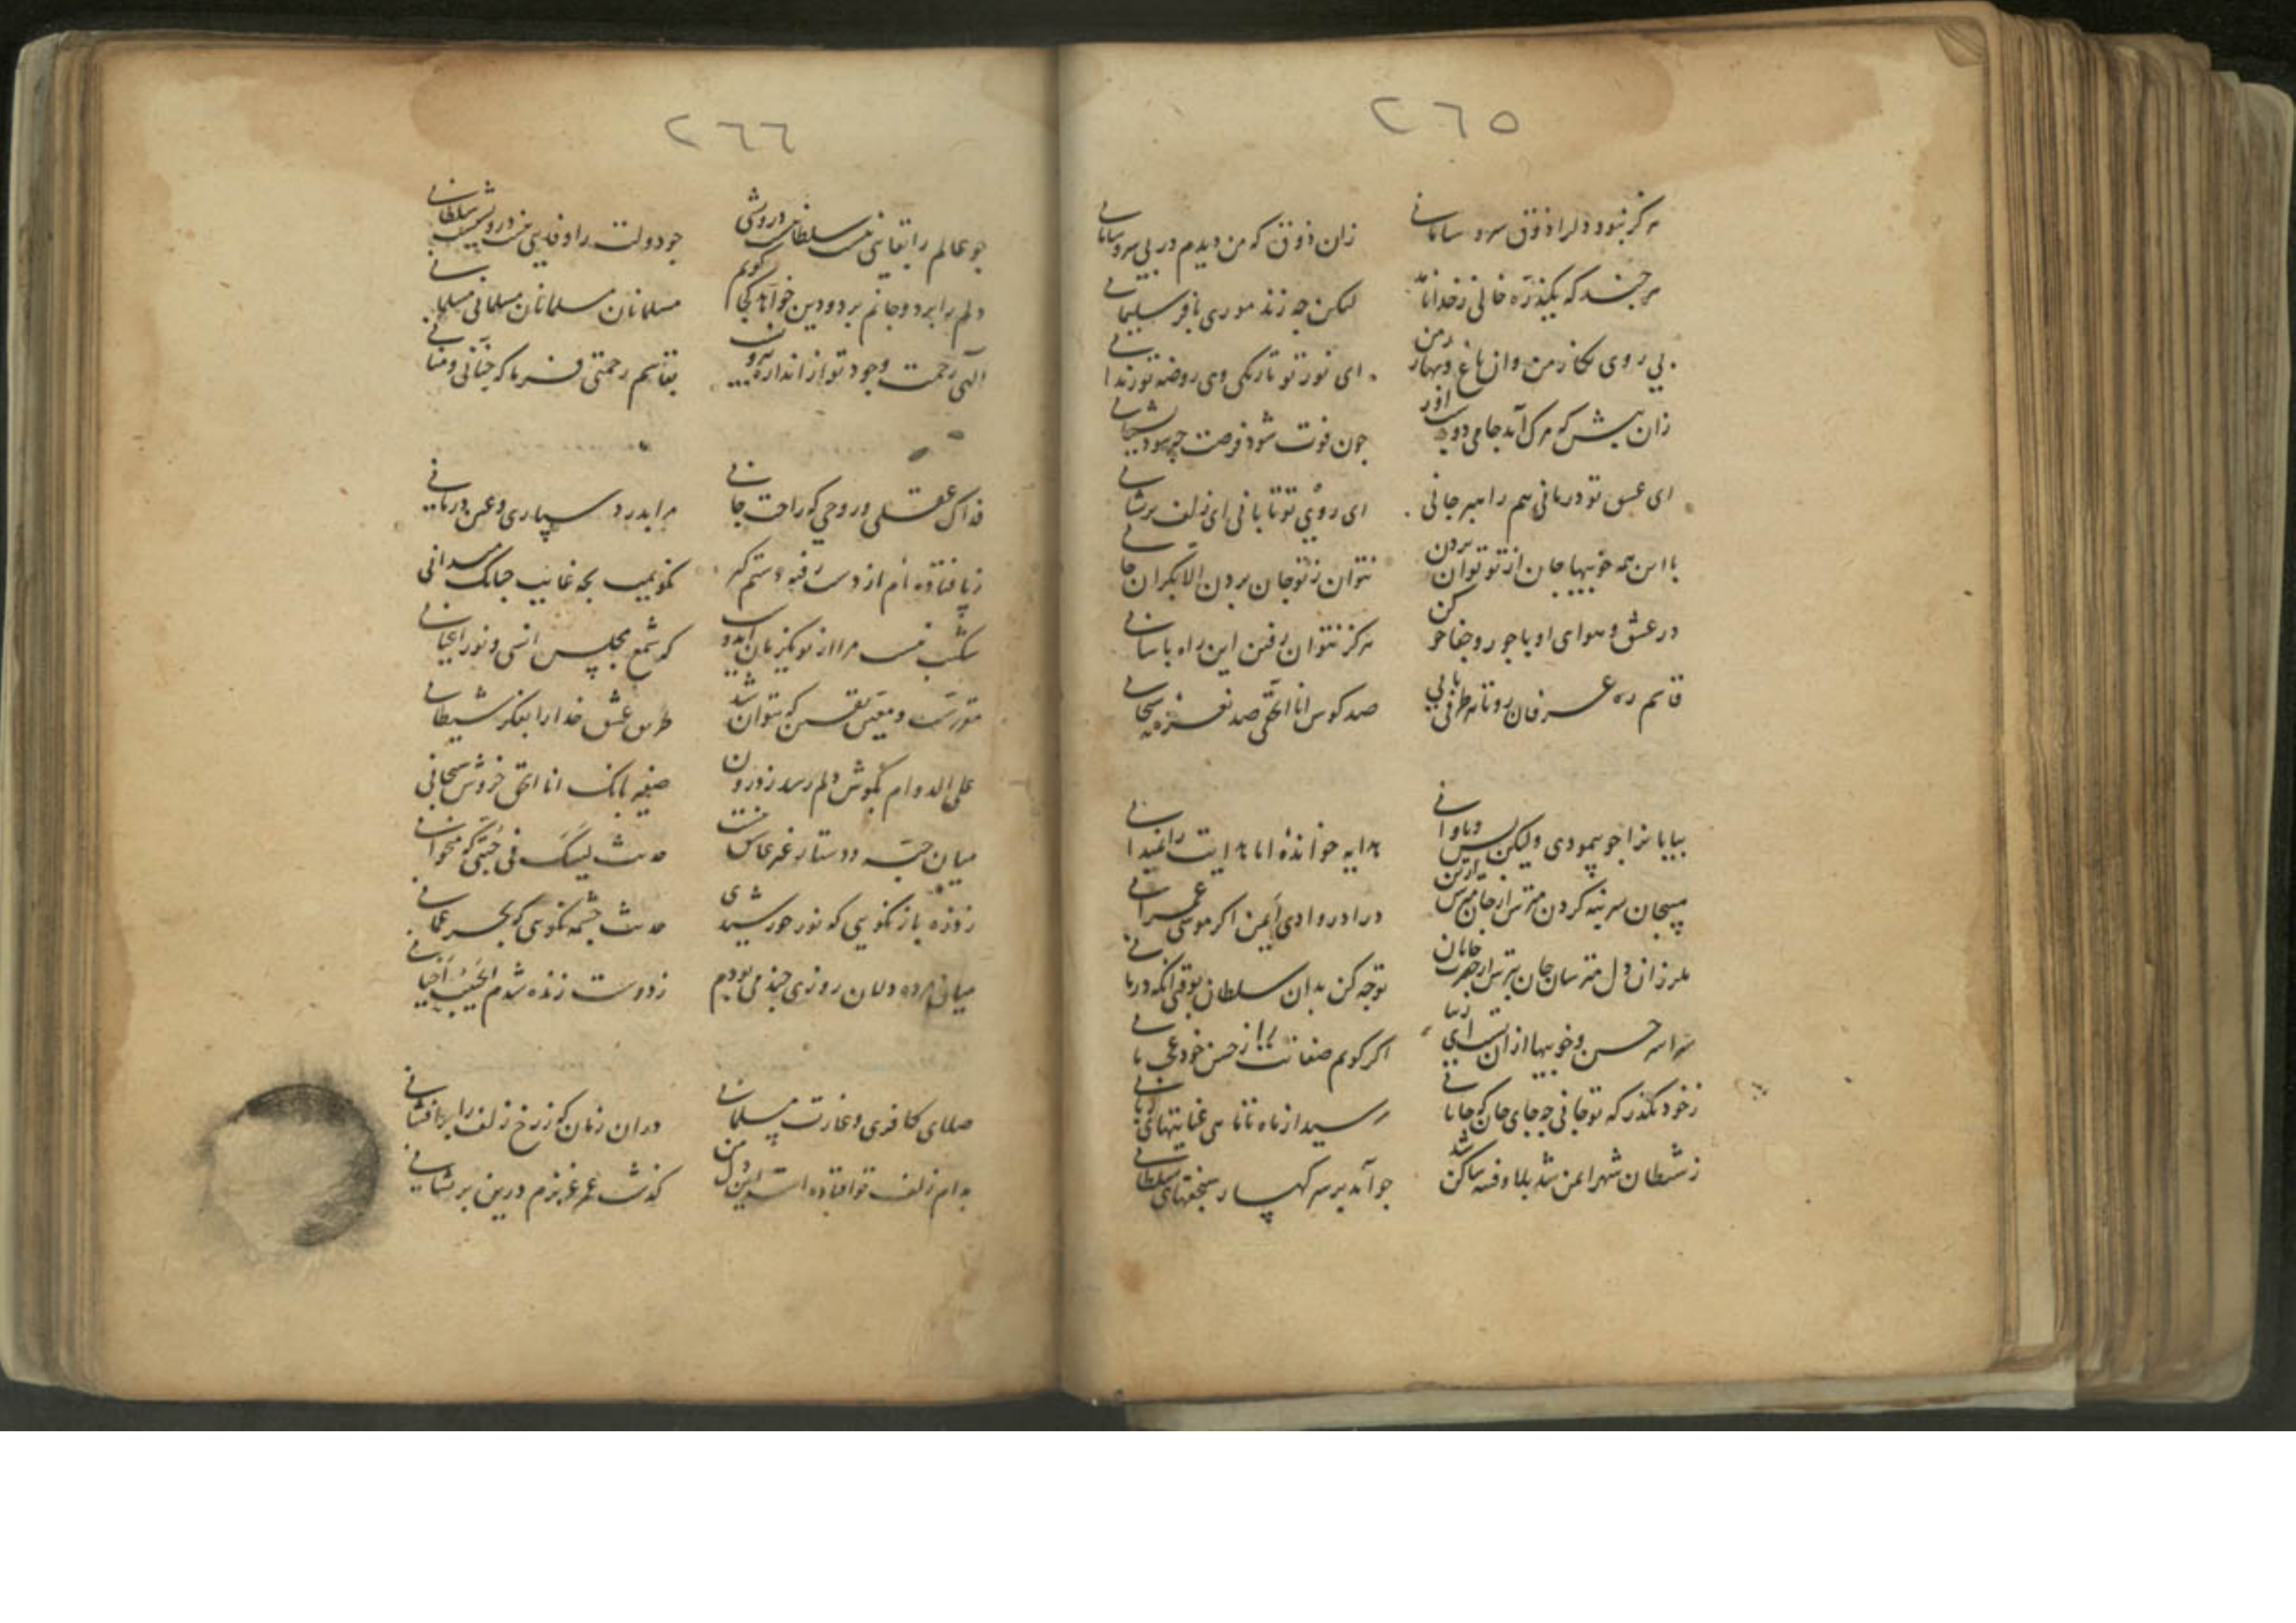 ٢٦٥
هرگز نبود دلرا ذوق سر و سامانی
زان ذوق که من دیدم در بی سر و سامانی
هر چند که یکذره خالی ز خدا
لیکن چه زند موری با فر سلیمانی
بی روی نکار من وان باغ و بهار من
ای نور تو تاریکی وی روضه تو زندانی
زان پیش که مرک آید جامی دو بدست آور
چون فوت شود فرصت چه سود پشیمانی
ای عشق تو درمانی هم راهبر جانی
ای روی تو تابانی ای زلف پریشانی
با این همه خوبیها جان از تو توان بردن
نتوان ز تو جان بردن الا بکران جانی
در عشق و هوای او با جور و جفا خو کن
هرکز نتوان رفتن این راه باسانی
قاسم ره عرفان رو تا هر طرفی یابی
صد کوس انا الحق صد نعره سبحانی
بیابانرا چو پیمودی ولیکن
هدایه خوانده اما هدایت را نمیدانی
مپیچان سر بنه کردن مترس از جان مپرس از تن
درا در وادی ایمن اکر موسی عمرانی
ملرزان دل مترسان جان مترس از هجرت جانان
توجه کن بدان سلطان بوقتی آنکه درمانی
سراسر حسن و خوبیها ازان
اکر کویم صفاتت را ز حسن خود عجب مانی
ز خود بکذر که تو جانی چه جای جان که جانانی
رسید از ماه تا ماهی عنایتهای ربانی
ز شیطان شهر ایمن شد بلا و فتنه ساکن شد
چو آمد بر سر کهسار سنجقهای سلطانی
٢٦٦
چو عالم را بقایی نیست سلطانیست درویشی
چو دولت را وفایی نیست درویشیست سلطانی
دلم را برد و جانم برد و دین خواهد کجا کویم
مسلمانان مسلمانان مسلمانی مسلمانی
الهی رحمت وجود تو از اندازه بیرونست
بقاسم رحمتی فرما که حنانی و منانی
فداک عقلی و روحی که راحت جانی
مرا بدرد سپاری و عین درمانی
ز پا فتاده ام از دست رفته دستم کیر
نکویمت بچه غایت چنانک میدانی
شکیب نیست مرا از تو یکزمان ایدوست
که شمع مجلس انسی و نور اعیانی
مقررست و معین یقین که نتوان شد
طریق عشق خدا را بفکر شیطانی
علی الدوام بکوش دلم رسد ز درون
صفیر بانک انا الحق خروش سبحانی
میان جبه و دستار غیر عاشق نیست
حدیث لیسک فی جبتی که میخوانی
ز ذره باز نکویی که نور خورشیدی
حدیث چشمه نکویی که بحر عمانی
میان مرده دلان روزی چند می بودم
ز دوست زنده شدم الحبیب احیانی
صلای کافری و غارت مسلمانی
دران زمان که ز رخ زلف را برافشانی
بدام زلف تو افتاده است این دل من
کذشت عمر عزیزم درین پریشانی